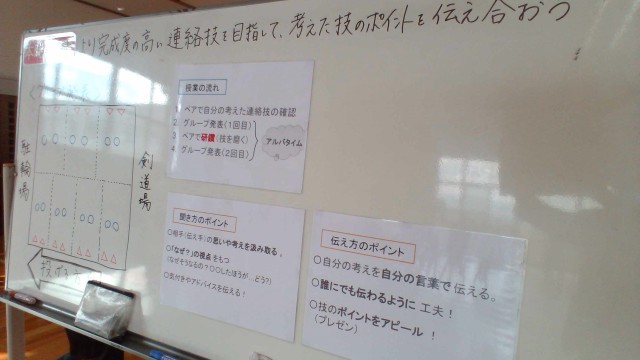 より完成度の高い連絡技を目指して、考えた技のポイントを伝え合おう
授業の流れ
1 ペアで自分の考えた連絡技の確認
2 グループ発表(1回目)
3 ペアで研鑽(技を磨く)
4 グループ発表(2回目)
アルバタイム
駐輪場
剣道場
聞き方のポイント
〇相手(伝え手)の思いや考えを汲み取る。
〇「なぜ?」の視点をもつ
(なぜそうなるの?〇〇したほうが、どう?)
〇気付きやアドバイスを伝える!
伝え方のポイント
〇自分の考えを自分の言葉で伝える。
〇誰にでも伝わるように工夫!
〇技のポイントをアピール!
(プレゼン)